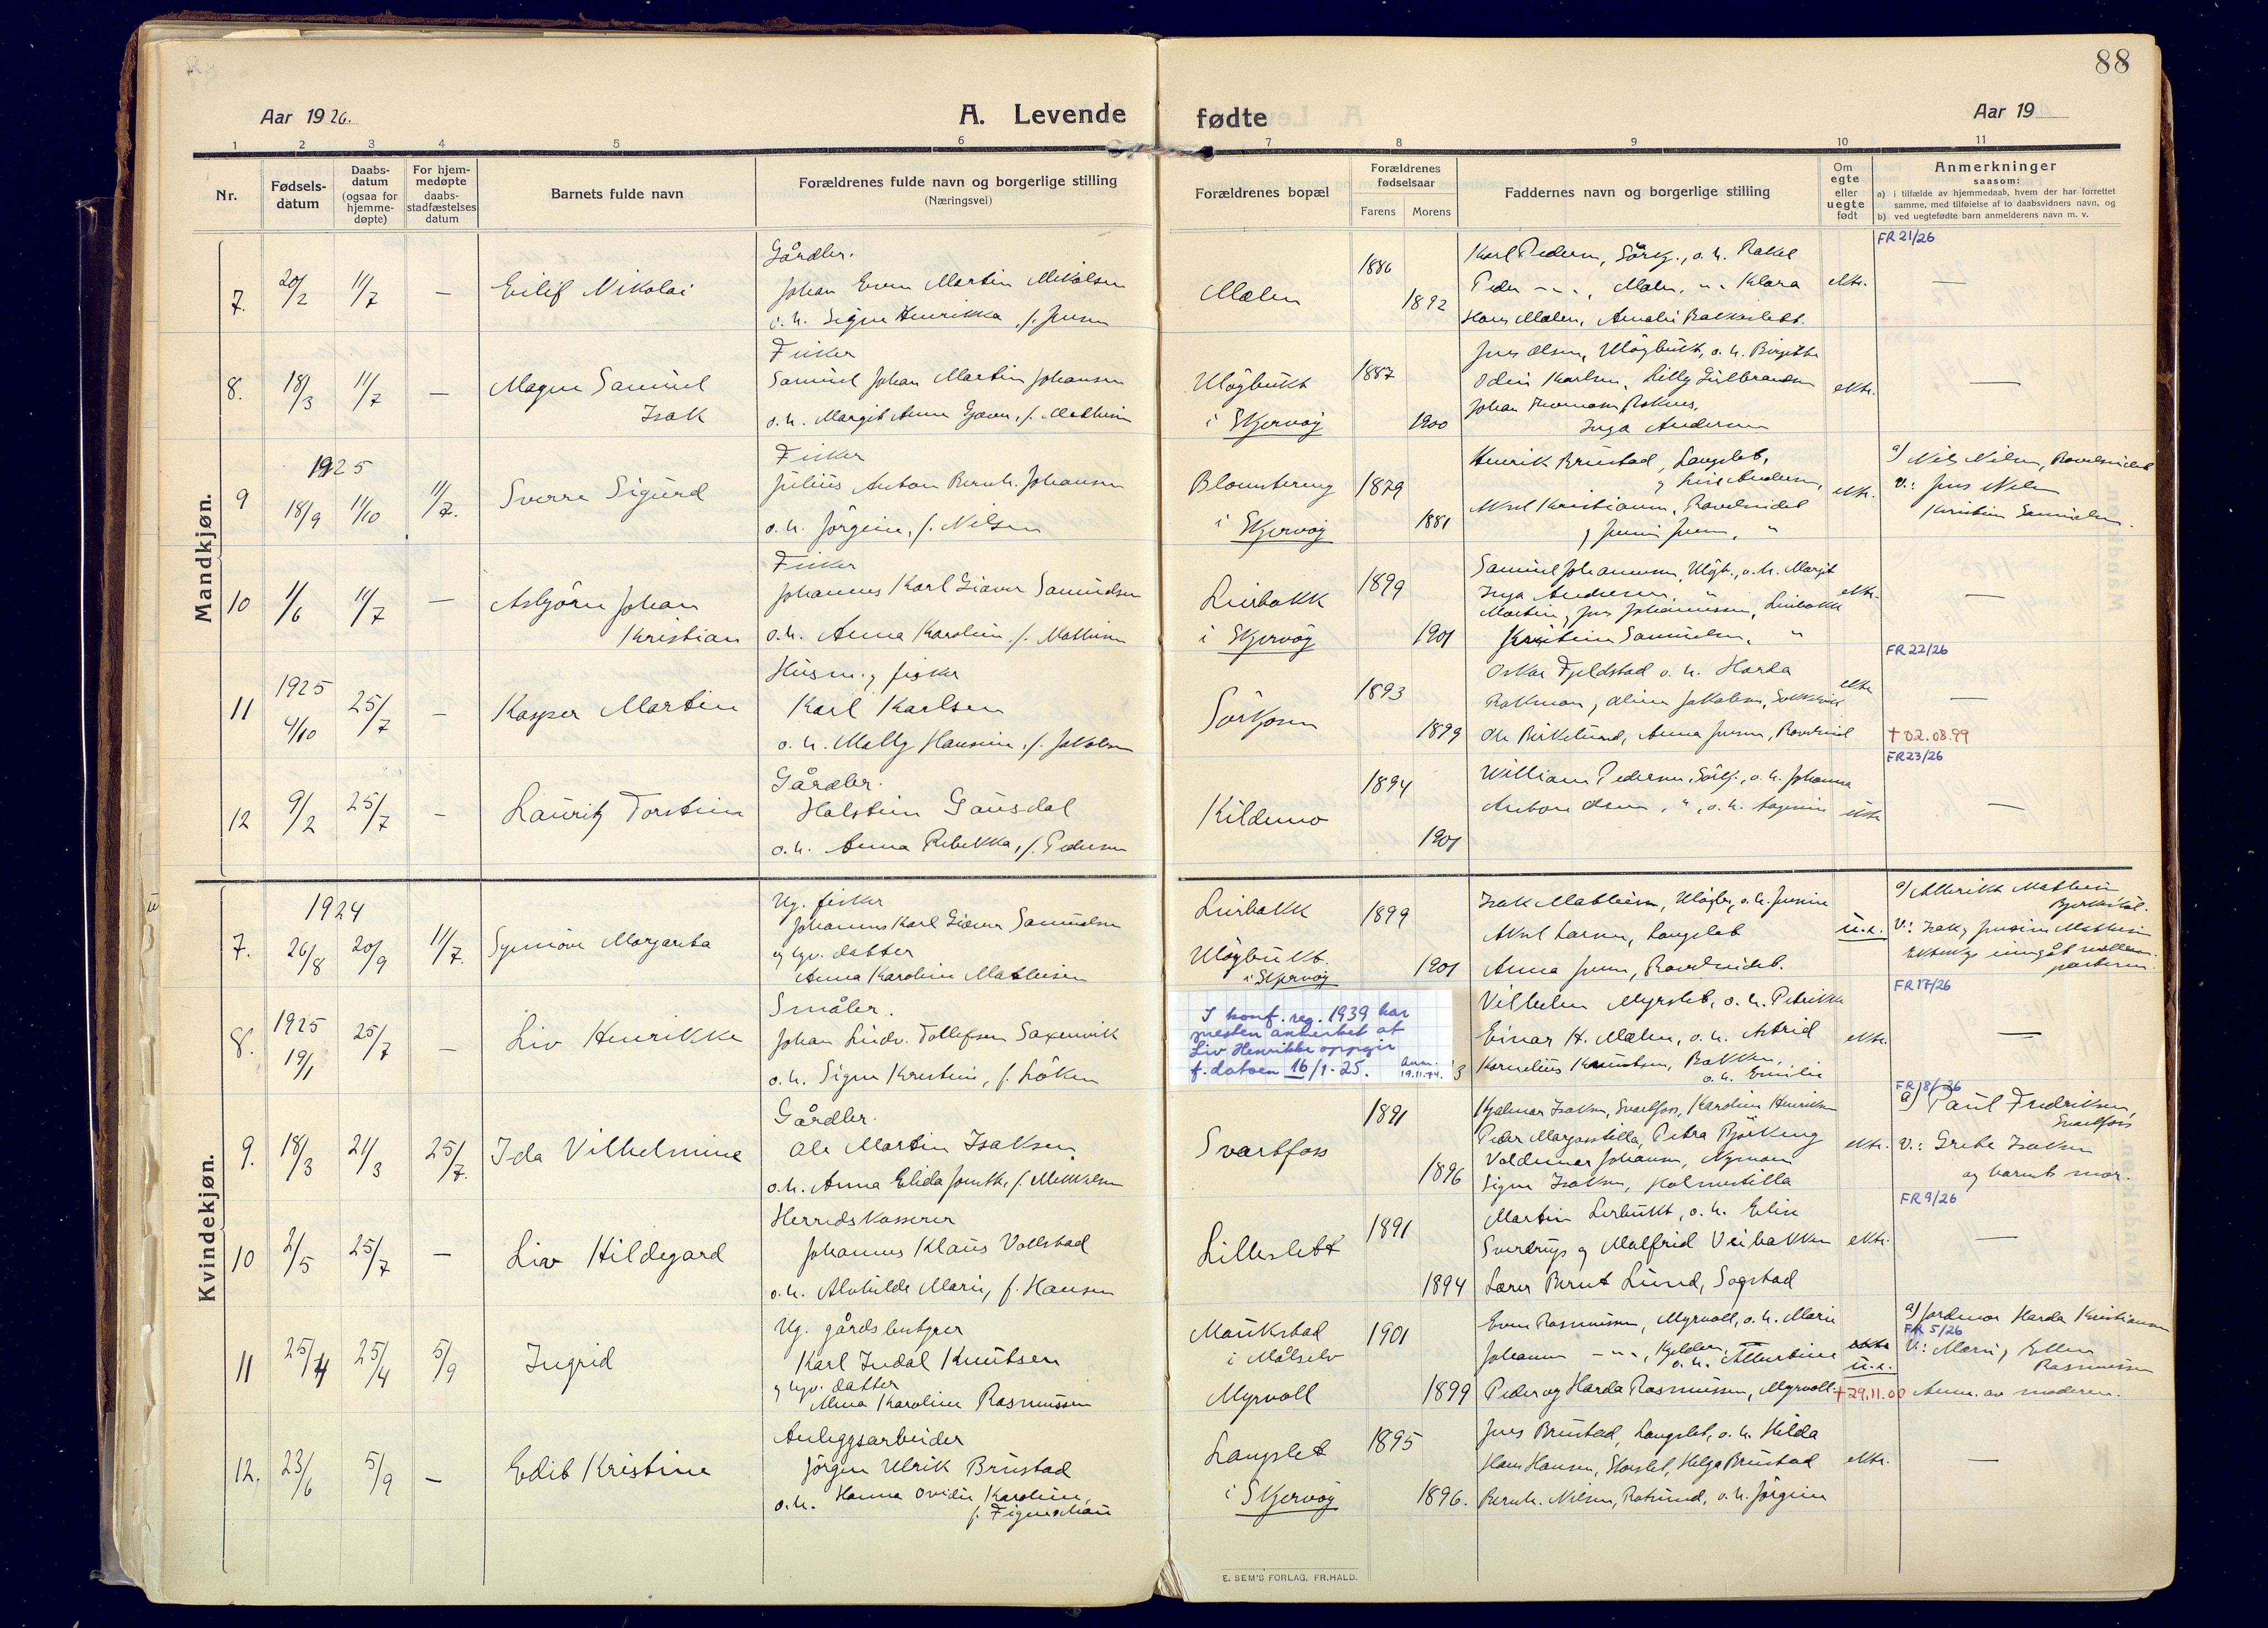 88
Aar 1926.
A. Levende
fødte
Aar 19
1 2 3 4 5 6 7 8 9 10 11
Nr.
Fødsels-
datum
Daabs-
datum
(ogsaa for
hjemme-
døpte)
For hjem-
medøpte
daabs-
stadfæstelses
datum
Barnets fulde navn
Forældrenes fulde navn og borgerlige stilling
(Næringsvei)
Forældrenes bopæl
Forældrenes
fødselsaar
Farens Morens
Faddernes navn og borgerlige stilling
Om
egte
eller
uegte
født
Anmerkninger
saasom:
a) i tilfælde av hjemmedaab, hvem der har forrettet
samme, med tilføielse af to daabsvidners navn, og
b) ved uegtefødte barn anmelderens navn m. v.
Mandkjøn.
7. 20/2 11/7 — Eilif Nikolai
Gårdbr.
Johan Even Martin Mikalsen
o. h. Signe Henrikka, f. Jensen
Mælen
1886
1892
Karl Pedersen, Sörkj., o. h. Rakel
Peder -"-, Mælen, -"- Klara
Hans Mælen, Amalie Bakkeslett.
ekte.
FR 21/26
—
8. 18/3 11/7 — Magne Samuel
Isak
Fisker
Samuel Johan Martin Johansen
o. h. Margit Anne Gjæver, f. Mathisen
Ulögbukt
i Skjervöy
1887
1900
Jens Olsen, Ulögbukt, o. h. Birgitte
Odin Karlsen, Lilly Gulbrandsen
Johan Thomassen Roknes,
Inga Andersen
ekte.
—
9 1925
18/9 11/10 11/7. Sverre Sigurd
Fisker
Julius Anton Bernh. Johansen
o. h. Jörgine, f. Nilsen
Blomstereng
i Skjervöy
1879
1881
Henrik Brustad, Langslet,
og Lise Andersen,
Aksel Kristiansen, Ravelseidet
og Jenni Jensen, "
ekte.
a) Nils Nilsen, Ravelseidet
V.: Jens Nilsen
Kristine Samuelsen.
10 1/6 11/7 — Asbjörn Johan
Kristian
Fisker
Johannes Karl Giæver Samuelsen
o. h. Anna Karoline, f. Mathisen
Leirbakk
i Skjervöy
1899
1901
Samuel Johannesen, Ulögb., o. h. Margit
Inga Andersen, "
Martin og Jens Johannessen, Leirbakk
Kristine Samuelsen, "
ekte.
—
11 1925
4/10 25/7 - Kasper Martin
Husm. og fisker
Karl Karlsen
o. h. Molly Hansine, f. Jakobsen
Sörkjosen
1893
1899
Oskar Fjeldstad o. h. Harda
Rakman og Aline Jakobsen, Sokkelvik
Ole Birkelund, Anna Jensen, Ravelseid
ekte
FR 22/26
—
† 02.08.99
12 9/2 25/7 - Lauritz Torstein
Gårdbr.
Halstein Gausdal
o. h. Anna Rebekka, f. Pedersen
Kildemo
1894
1901
William Pedersen, Sörkj., o. h. Johanna
Anton Olsen, ", o. h. Hagerine
ekte
FR 23/26
—
Kvindekjøn.
7. 1924
26/8 20/9 11/7. Synnöve Margareta
Ug. fisker
Johannes Karl Giæver Samuelsen
og ugv. datter
Anna Karoline Mathisen
Leirbakk
Ulögbukt.
i Skjervöy
1899
1901
Isak Mathisen, Ulögb., o. h. Jensine
Aksel Larsen, Langslet
Anna Jensen, Ravelseidet.
u.e.
a) Albrikt Mathisen
V.: Isak og Jensine Mathisen
Ekteskap inngåt mellem
partene.
8. 1925
19/1 25/7 — Liv Henrikke
Småbr.
Johan Ludv. Tollefsen Saxenvik
o. h. Signe Kristine, f. Löken
I konf. reg. 1939 har
presten anmerket at
Liv Henrikke oppgir
f.datoen 16/1-25.
Anm.
19.11.74.
3
Vilhelm Myrslet, o. h. Petrikke
Einar H. Mælen, o. h. Astrid
Kornelius Knutsen, Bakken,
o. h. Emilie
ekte.
FR 17/26
—
9. 18/3 21/3 25/7. Ida Vilhelmine
Gårdbr.
Ole Martin Isaksen
o. h. Anna Elida Jonette, f. Mikkelsen
Svartfoss
1891
1896
Hjalmar Isaksen, Svartfoss, Karoline Henriksen
Peder Margosstilla, Petra Björkeng
Valdemar Johansen, Nymoen
Signe Isaksen, Holmestilla
ekte.
FR 18/26
a) Paul Fredriksen,
Svartfoss
V.: Grete Isaksen
og barnets mor.
10 2/5 25/7 — Liv Hildegard
Herredskasserer
Johannes Klaus Vollstad
o. h. Alvhilde Marie, f. Hansen
Lilleslett
1891
1894
Martin Lerbukt, o. h. Elise
Sverdrup og Malfrid Veibakken
Lærer Bernt Lund, Sogstad
ekte.
FR 9/26
—
11 25/4 25/4 5/9 Ingrid
Ug. gårdsbestyrer
Karl Indal Knutsen
og ugv. datter
Alma Karoline Rasmussen
Maukstad
i Målselv
Myrvoll
1901
1899
Even Rasmussen, Myrvoll, o. h. Marie
Johannes -"-, Kjelderen,
o. h. Albertine
Peder og Harda Rasmussen, Myrvoll.
ekte
u.e.
† 29.11.00
a) Jordmor Harda Kristiansen
FR 5/26
V.: Marie og Ellen
Rasmussen
Anm. av moderen.
12. 23/6 5/9 — Edit Kristine
Anleggsarbeider
Jörgen Ulrik Brustad
o. h. Hanna Ovidie Karoline,
f. Figenschau
Langslet
i Skjervöy
1895
1896.
Jens Brustad, Langslet, o. h. Hilda
Hans Hansen, Storslet, Helga Brustad
Bernh. Nilsen, Rotsund, o. h. Jörgine
ekte.
—
E. SEM'S FORLAG. FR.HALD.